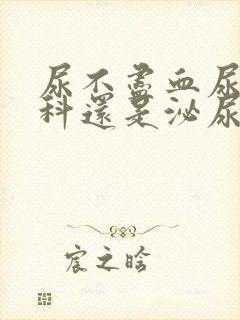 尿不盡血尿
科還是泌尿
宸之晗